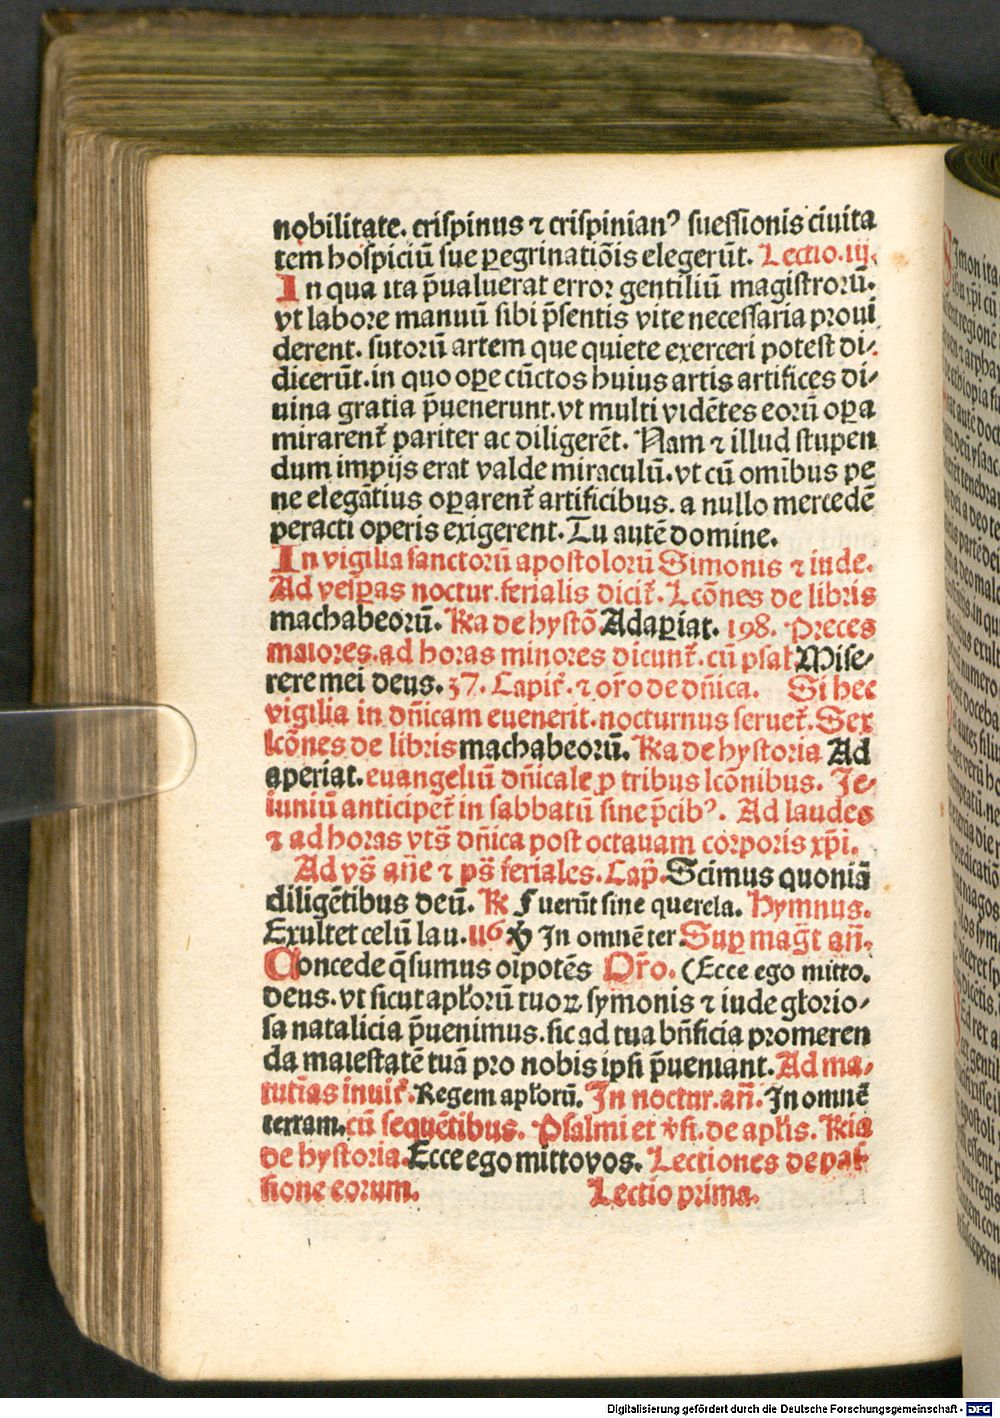 nobilitate. crispinus ⁊ crispinianꝰ suessionis ciuita
tem hospiciū sue ꝑegrinatiōis elegerūt. Lectio.iij.
In qua ita p̄ualuerat error gentiliū magistrorū.
vt labore manuū sibi p̄sentis vite necessaria proui
derent. sutorū artem que quiete exerceri potest di⸗
dicerūt. in quo oꝑe cūctos huius artis artifices di⸗
uina gratia p̄uenerunt. vt multi vidētes eorū oꝑa
mirarent᷑ pariter ac diligerēt. Nam ⁊ illud stupen
dum impijs erat valde miraculū. vt cū om̄ibus pe
ne elegātius oꝑarent᷑ artificibus. a nullo mercedē
peracti operis exigerent. Tu autē domine.
In vigilia sanctorū apostolorū Simonis ⁊ iude.
Ad vesꝑas noctur. ferialis dicit᷑. Lcōnes de libris
machabeorū. Ra de hystō Adaꝑiat. 198. Preces
maiores. ad horas minores dicunt᷑. cū psal Mise⸗
rere mei deus. 37. Capit᷑. ⁊ oro̅ de dn̄ica. Si hec
vigilia in dn̄icam euenerit. nocturnus seruet᷑. Sex
lcōnes de libris machabeorū. Ra de hystoria Ad
aperiat. euangeliū dn̄icale ꝓ tribus lcōnibus. Je⸗
iuniū anticipet᷑ in sabbatū sine p̄cibꝰ. Ad laudes
⁊ ad horas vts̄ dn̄ica post octauam corporis xp̄i.
Ad vs̄ an̄e ⁊ ps̄ feriales. Cap̄. Scimus quoniā
diligētibus deū. ℟ Fuerūt sine querela. Hymnus.
Exultet celū lau. 116 ℣ In omnē ter. Suꝑ mag̅t an̄.
Concede q̄sumus oīpotēs Oro̅. (Ecce ego mitto.
deus. vt sicut apl̄orū tuoꝝ symonis ⁊ iude glorio⸗
sa natalicia p̄uenimus. sic ad tua bn̄ficia promeren
da maiestatē tuā pro nobis ipsi p̄ueniant. Ad ma⸗
tutin̄as inuit᷑. Regem apl̄orū. In noctur. an̄. In omnē
terram. cū sequētibus. Psalmi et ℣si. de apl̄is. Ria
de hystoria. Ecce ego mitto vos. Lectiones de pas
sione eorum. Lectio prima.
Digitalisierung gefördert durch die Deutsche Forschungsgemeinschaft - DFG